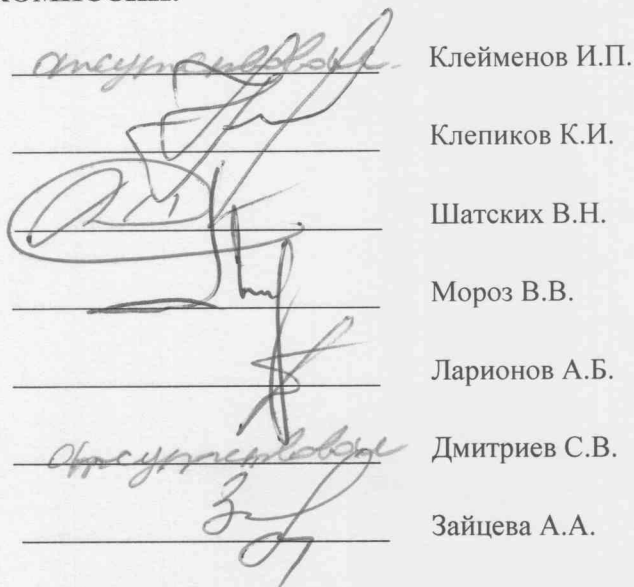 отсутствовал Клейменов И.П.
Клепиков К.И.
Шатских В.Н.
Мороз В.В.
Ларионов А.Б.
отсутствовал Дмитриев С.В.
Зайцева А.А.